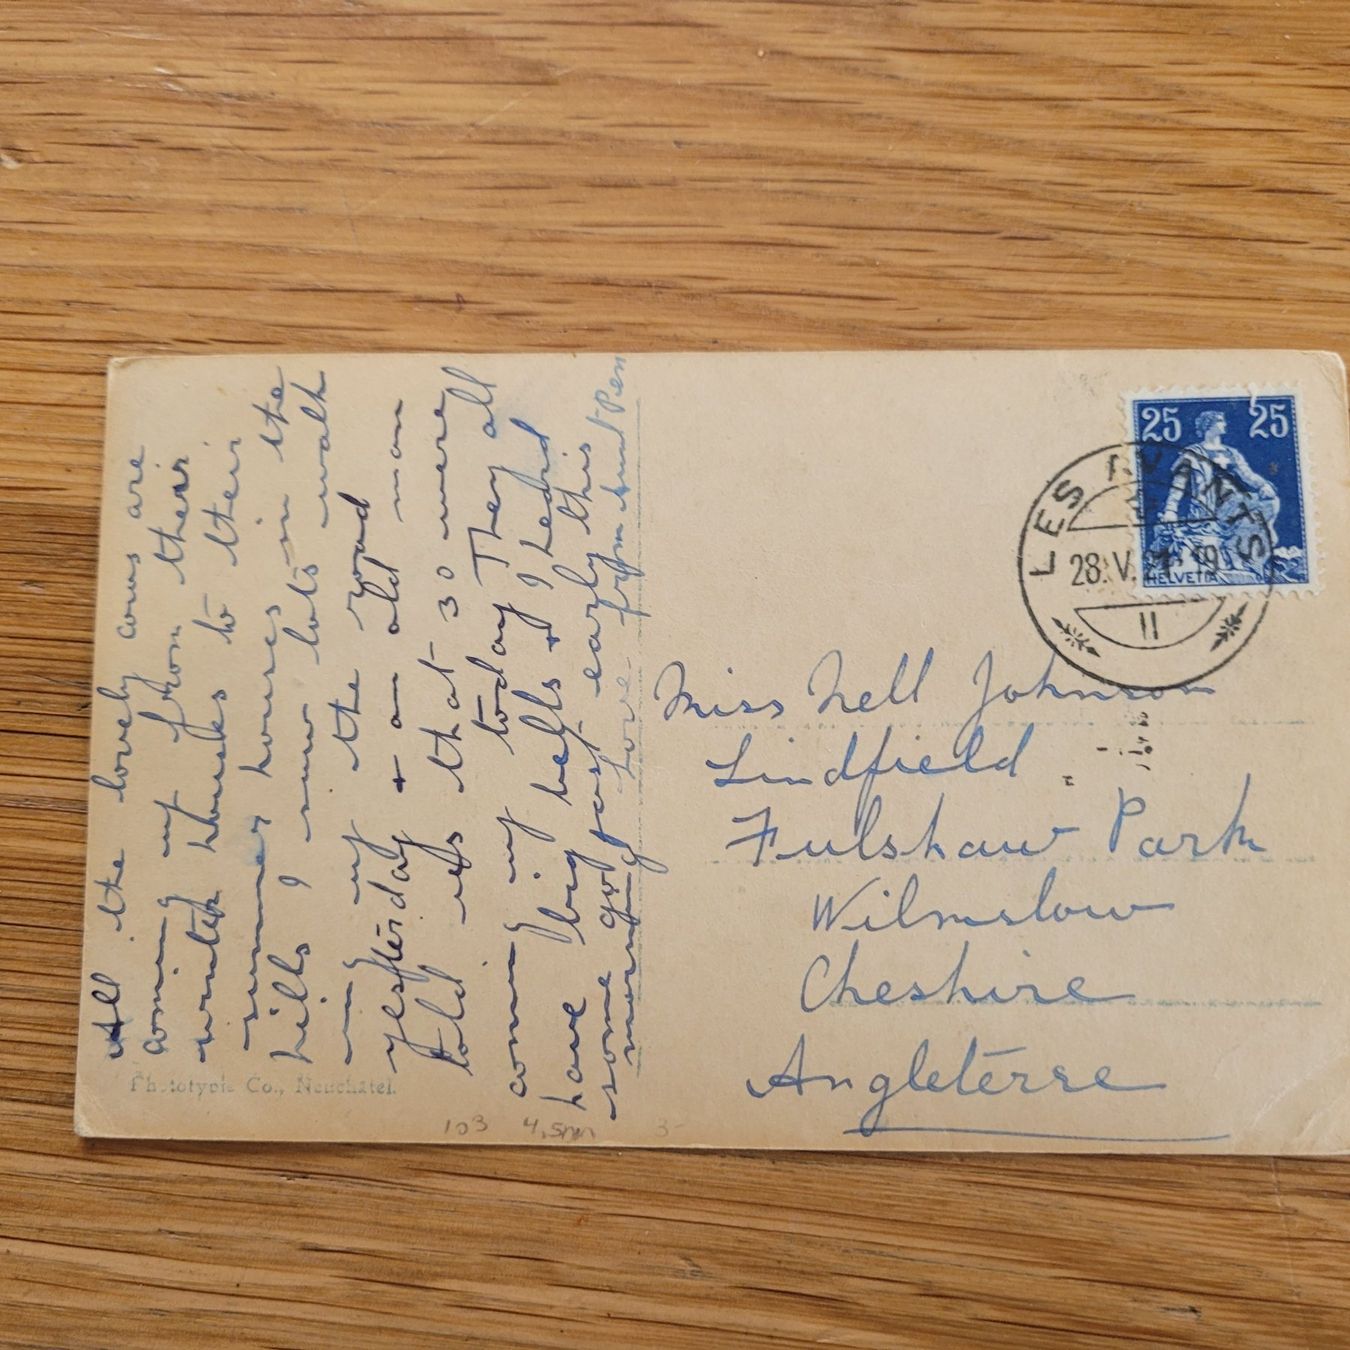 All the lovely cows are
coming up from their
winter houses to their
summer houses in the
hills I saw lots walk
ing up the road
yesterday + an old man
told us that 30 were
coming up today They all
have big bells + I heard
some go past early this
morning Love from Aunt Pen
Phototypie Co., Neuchâtel.
103 4,5nn 3-
25 25
HELVETIA
LES AVANTS
28.V. 19
II
Miss Nell Johnson
Lindfield
Fulshaw Park
Wilmslow
Cheshire
Angleterre